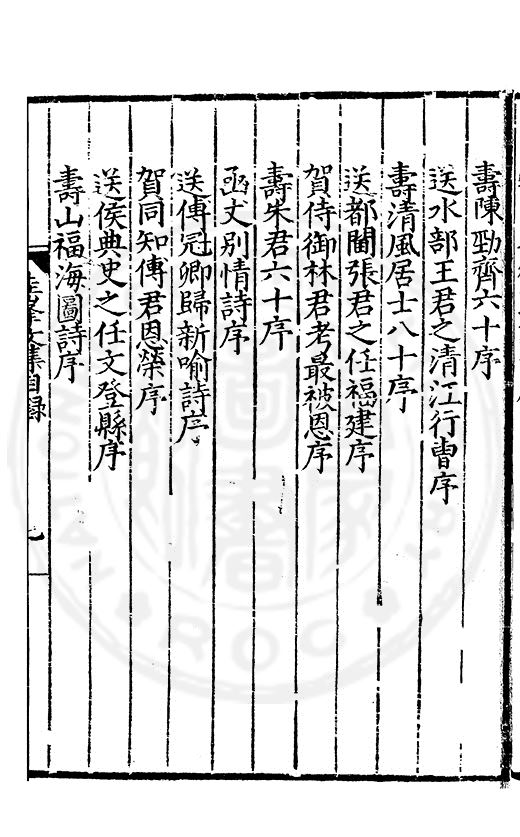 壽陳勁齊六十序
送水部王君之清江行曺序
壽清風居士八十序
送都閫張君之任福建序
賀侍御林君考最被恩序
壽朱君六十序
函丈別情詩序
送傅冠卿歸新喻詩序
賀同知傅君恩榮序
送侯典史之任文登縣序
壽山福海圖詩序
文集目録